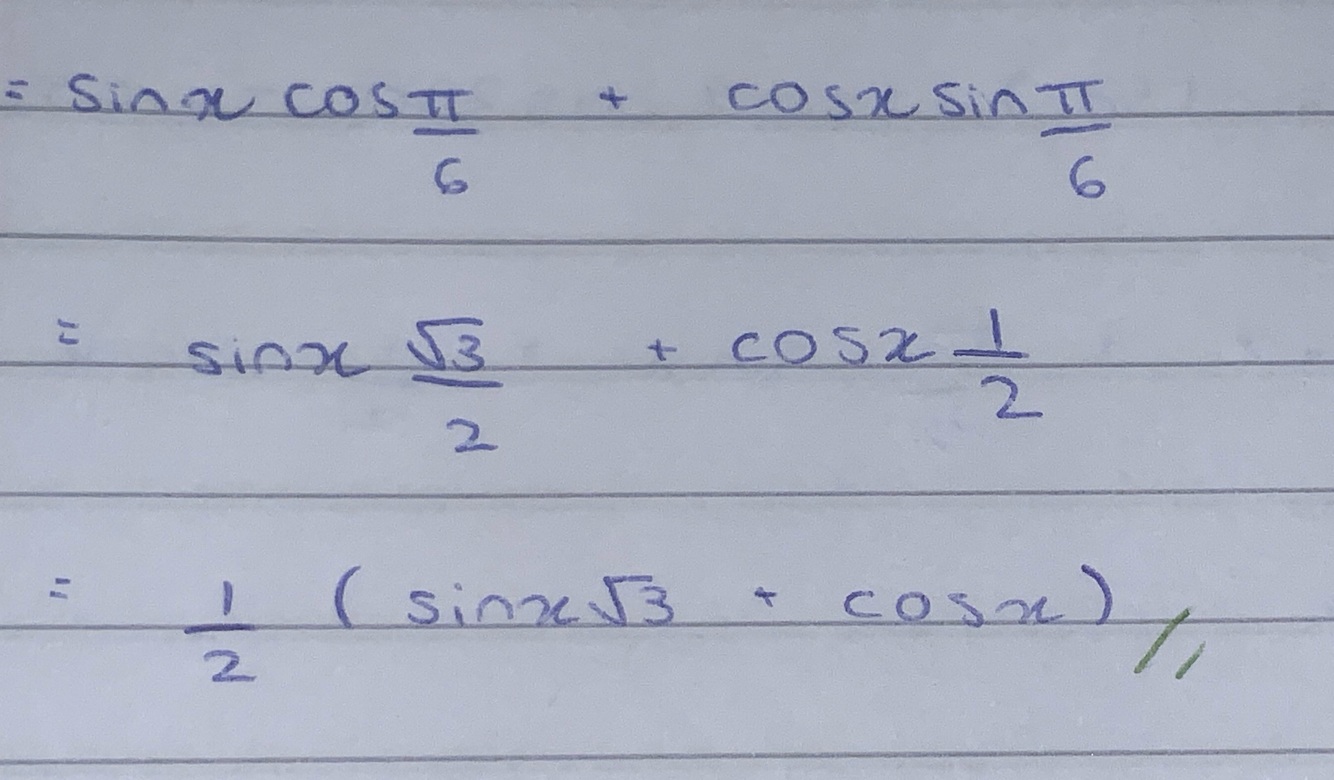 = sinx cos π/6 + cosx sin π/6
= sinx √3/2 + cosx 1/2
= 1/2 ( sinx√3 + cosx ) //